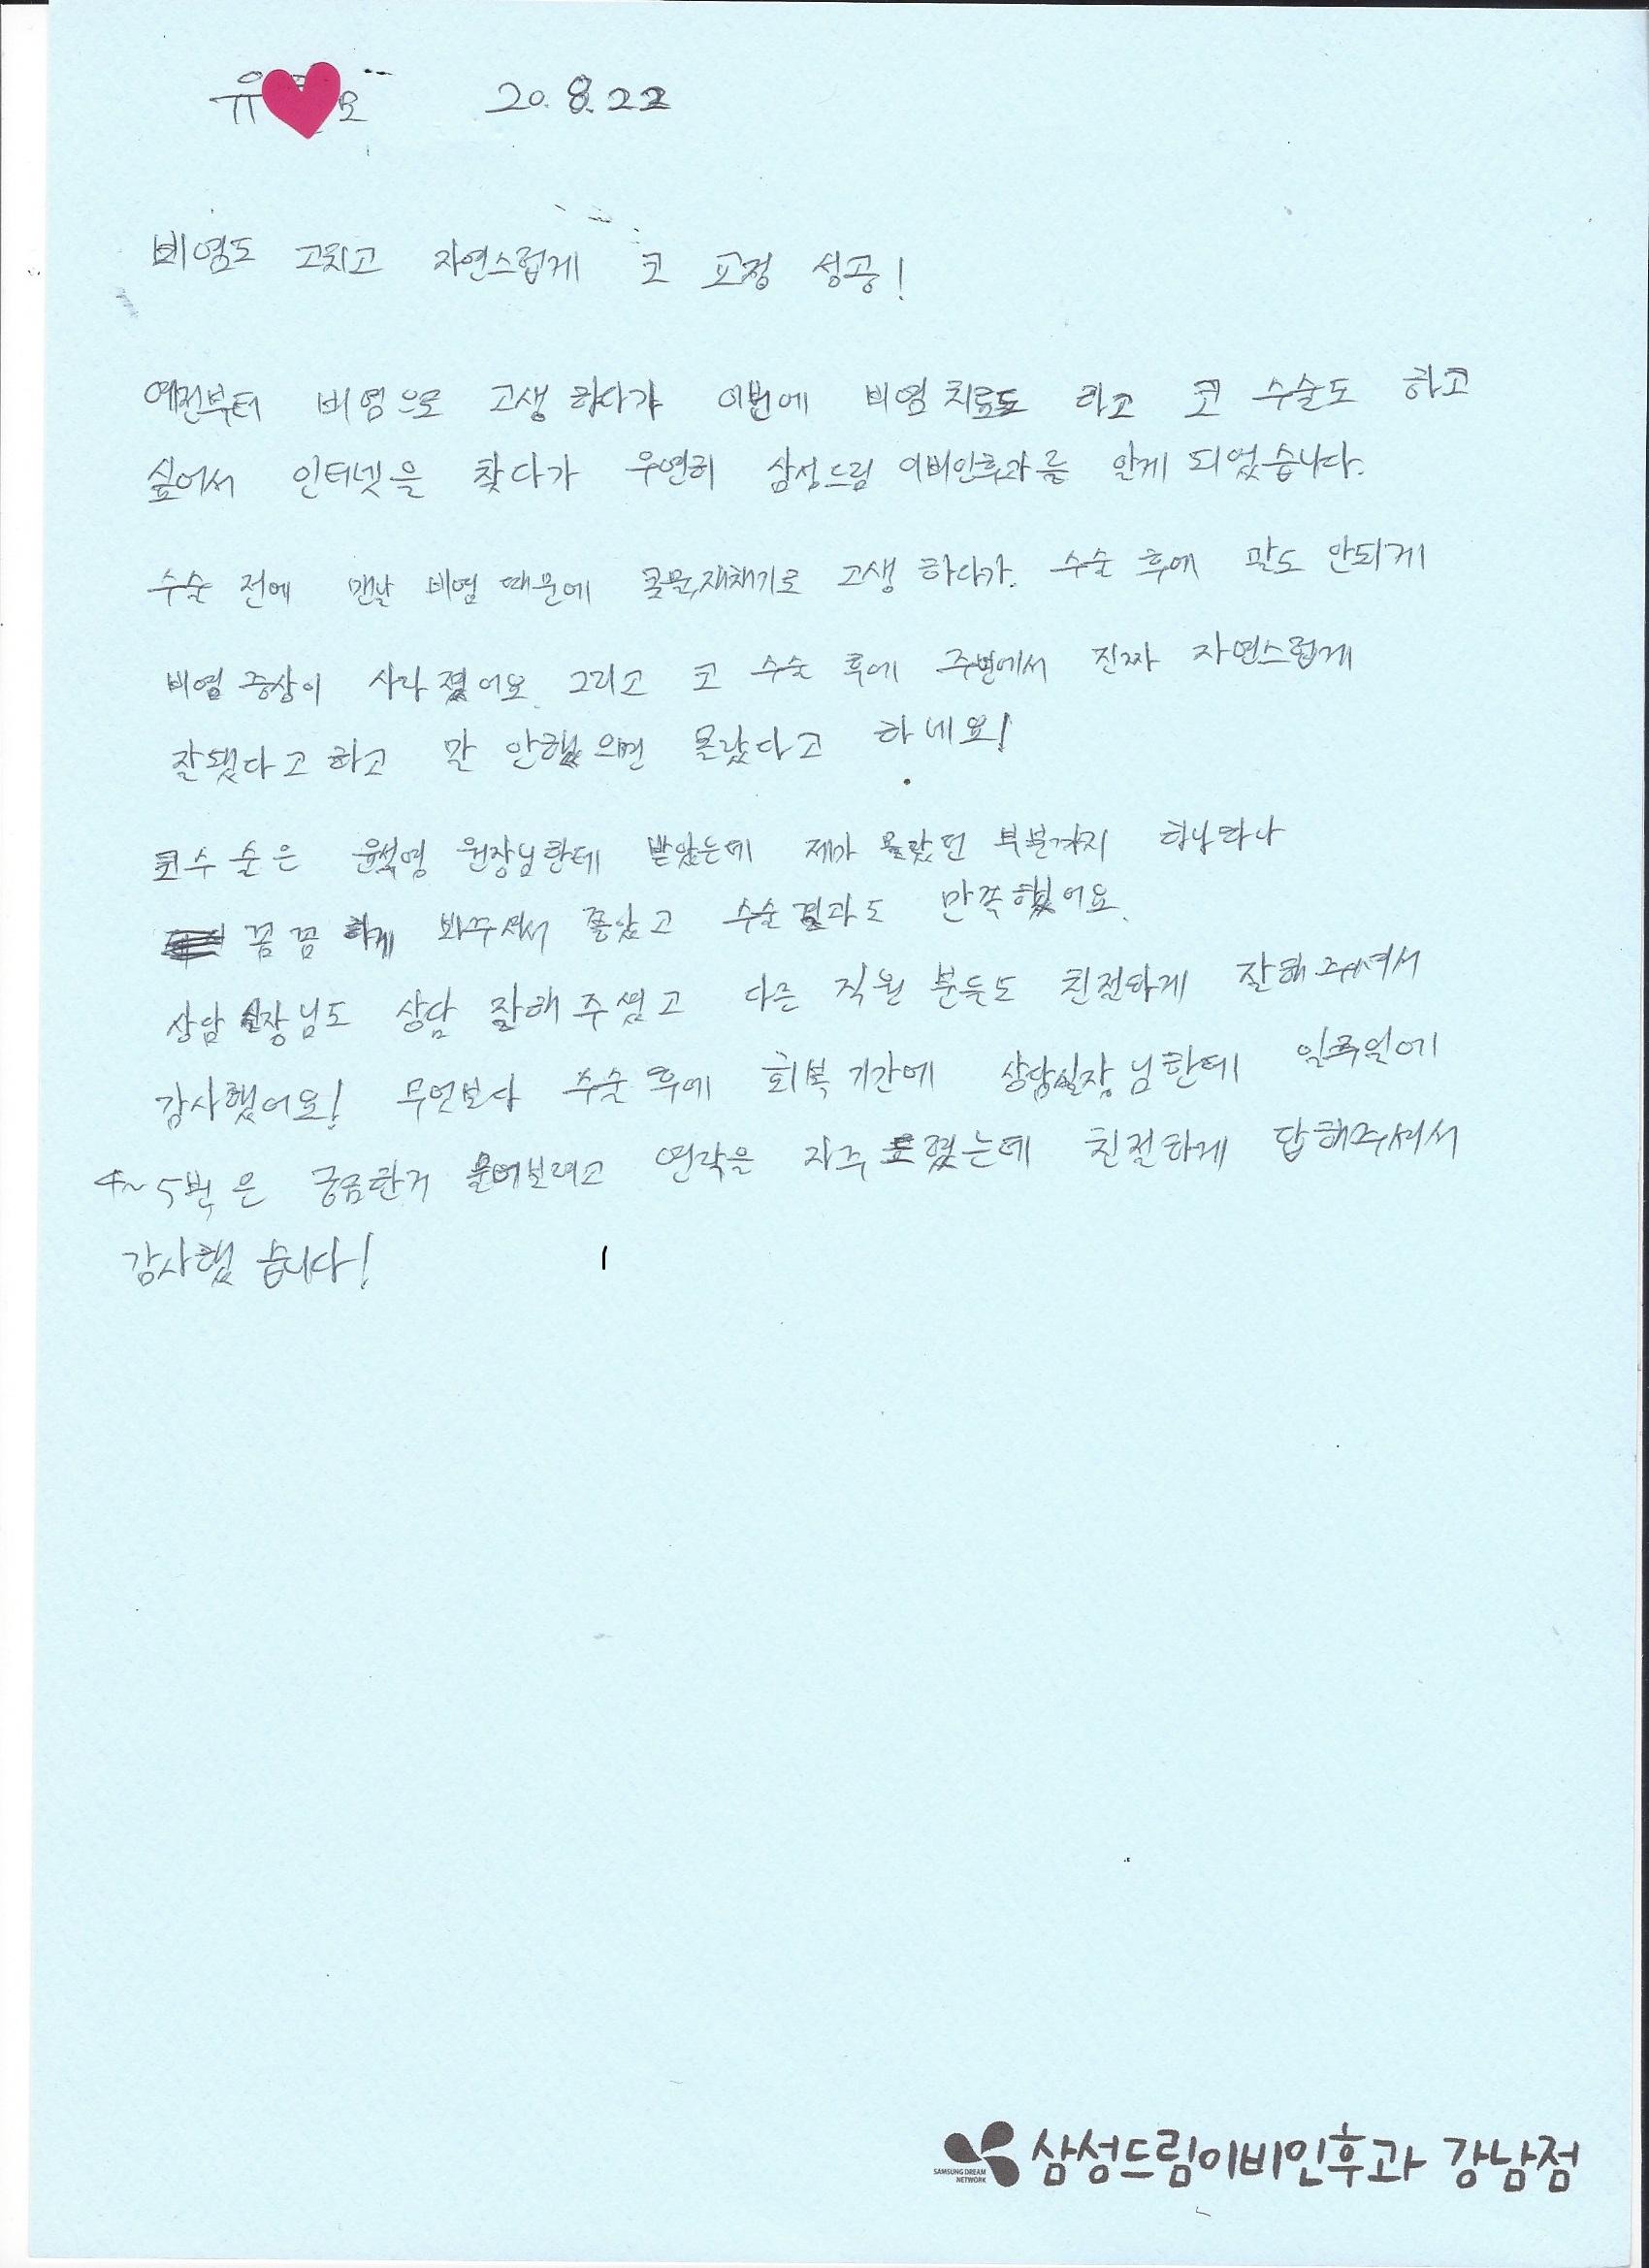 유 20. 8. 22
비염도 고치고 자연스럽게 코 교정 성공!
예전부터 비염으로 고생 하다가 이번에 비염 치료도 하고 코 수술도 하고
싶어서 인터넷을 찾다가 우연히 삼성드림 이비인후과를 알게 되었습니다.
수술 전에 맨날 비염 때문에 콧물, 재채기로 고생 하다가. 수술 후에 말도 안되게
비염 증상이 사라 졌어요. 그리고 코 수술 후에 주변에서 진짜 자연스럽게
잘됐다고 하고 말 안했으면 몰랐다고 하네요!
코수술은 윤석영 원장님한테 받았는데 제가 몰랐던 부분까지 하나하나
꼼꼼하게 봐주셔서 좋았고 수술 결과도 만족했어요.
상담 실장님도 상담 잘해 주셨고 다른 직원 분들도 친절하게 잘해주셔서
감사했어요! 무엇보다 수술 후에 회복 기간에 상담실장님한테 일주일에
4~5번은 궁금한거 물어보려고 연락을 자주 드렸는데 친절하게 답해주셔서
감사했습니다!
SAMSUNG DREAM NETWORK 삼성드림이비인후과 강남점